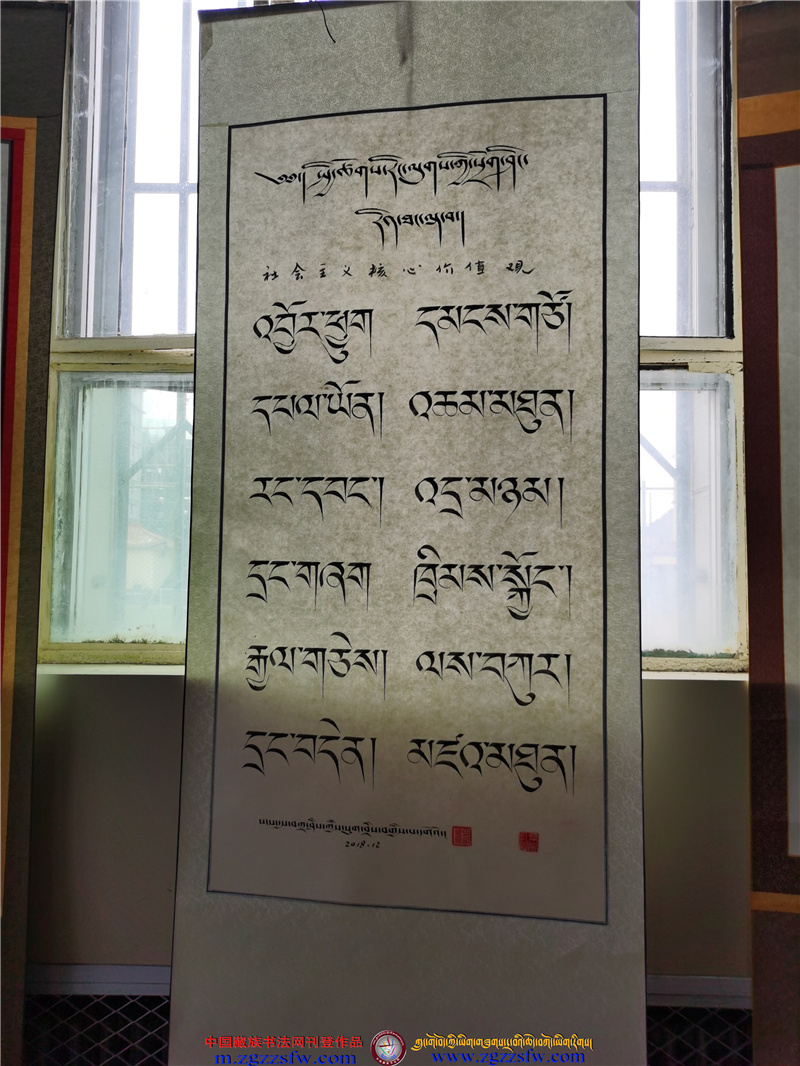 ༄༅། །སྤྱི་ཚོགས་རིང་ལུགས་ཀྱི་
社会主义核心价值观
འབྱོར་ཕྱུག དམངས་གཙོ།
དཔལ་ཡོན། འཆམ་མཐུན།
རང་དབང་། འདྲ་མཉམ།
དྲང་གཞག ཁྲིམས་སྐྱོང་།
རྒྱལ་གཅེས། ལས་བཀུར།
དྲང་བདེན། མཛའ་མཐུན།
2018.12
中国藏族书法网刊登作品
m.zgzzsfw.com www.zgzzsfw.com